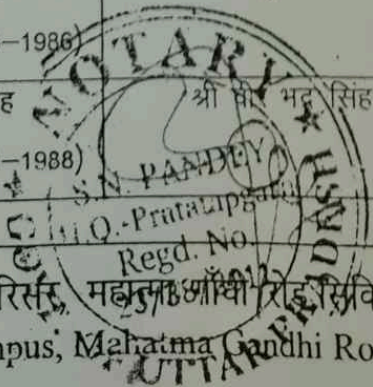 –1986)
NOTARY
ह श्री वीर भद्र सिंह
–1988)
S.N. PANDEY
H.Q.-Pratapgarh
Regd. No.
UTTAR PRADESH
परिसर, महात्मा गाँधी रोड, सिवि
mpus, Mahatma Gandhi Ro